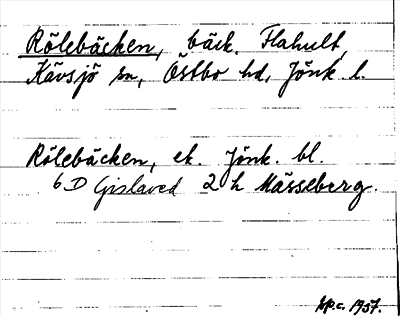 Rölebäcken, bäck, Flahult,
Kävsjö sn, Östbo hd, Jönk l.
Rölebäcken, ek. Jönk. bl.
6 D Gislaved 2 h Mässeberg.
1957.